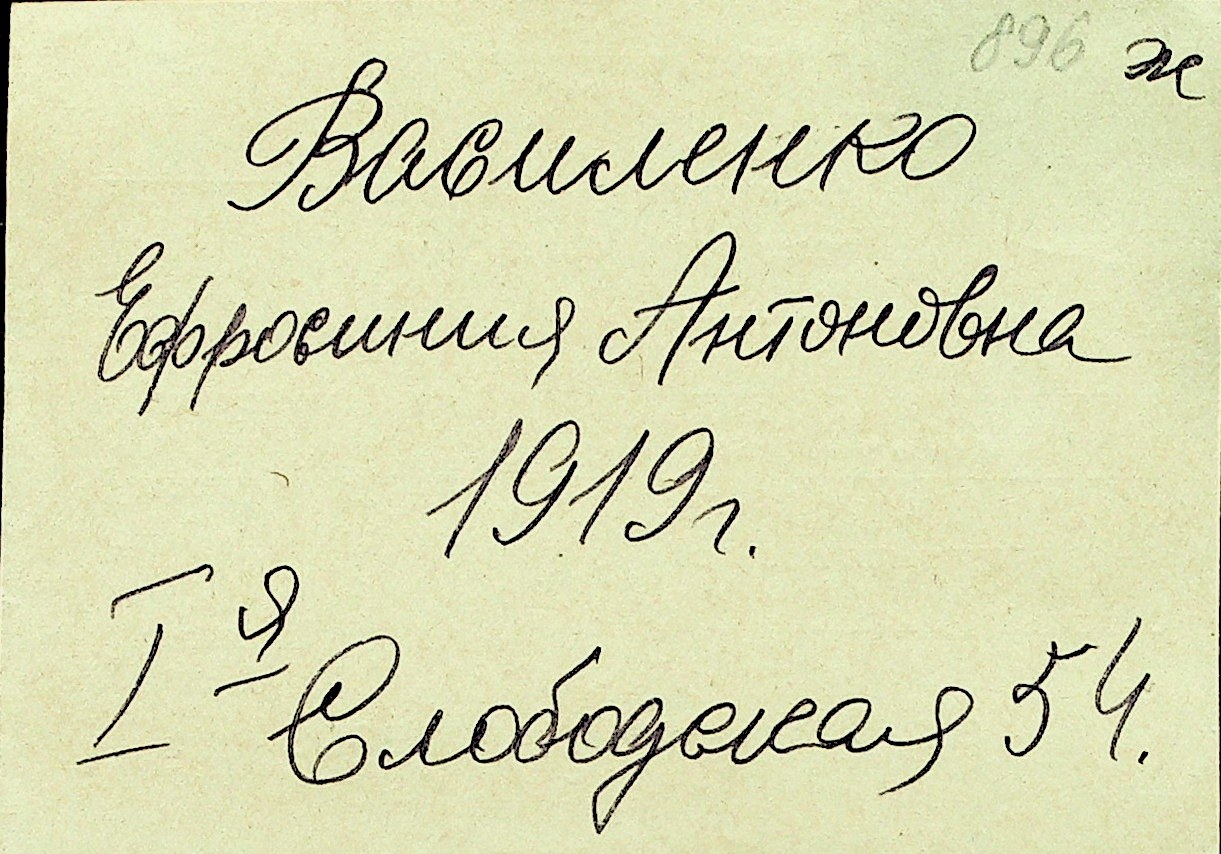 896 ж
Василенко
Ефросиния Антоновна
1919 г.
I я Слободская 54.